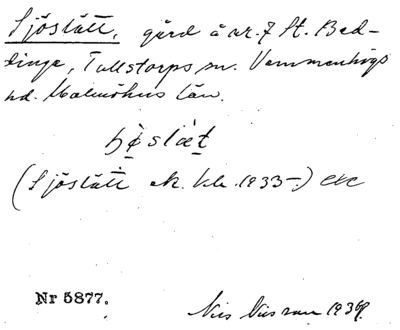 Sjöslätt, gård å nr. 7 St. Bed-
dinge, Tullstorps sn. Vemmenhögs
hd. Malmöhus län.
(Sjöslätt ek. kb. 1933-)
Nr 5877.
Nils Nilsson 1939.